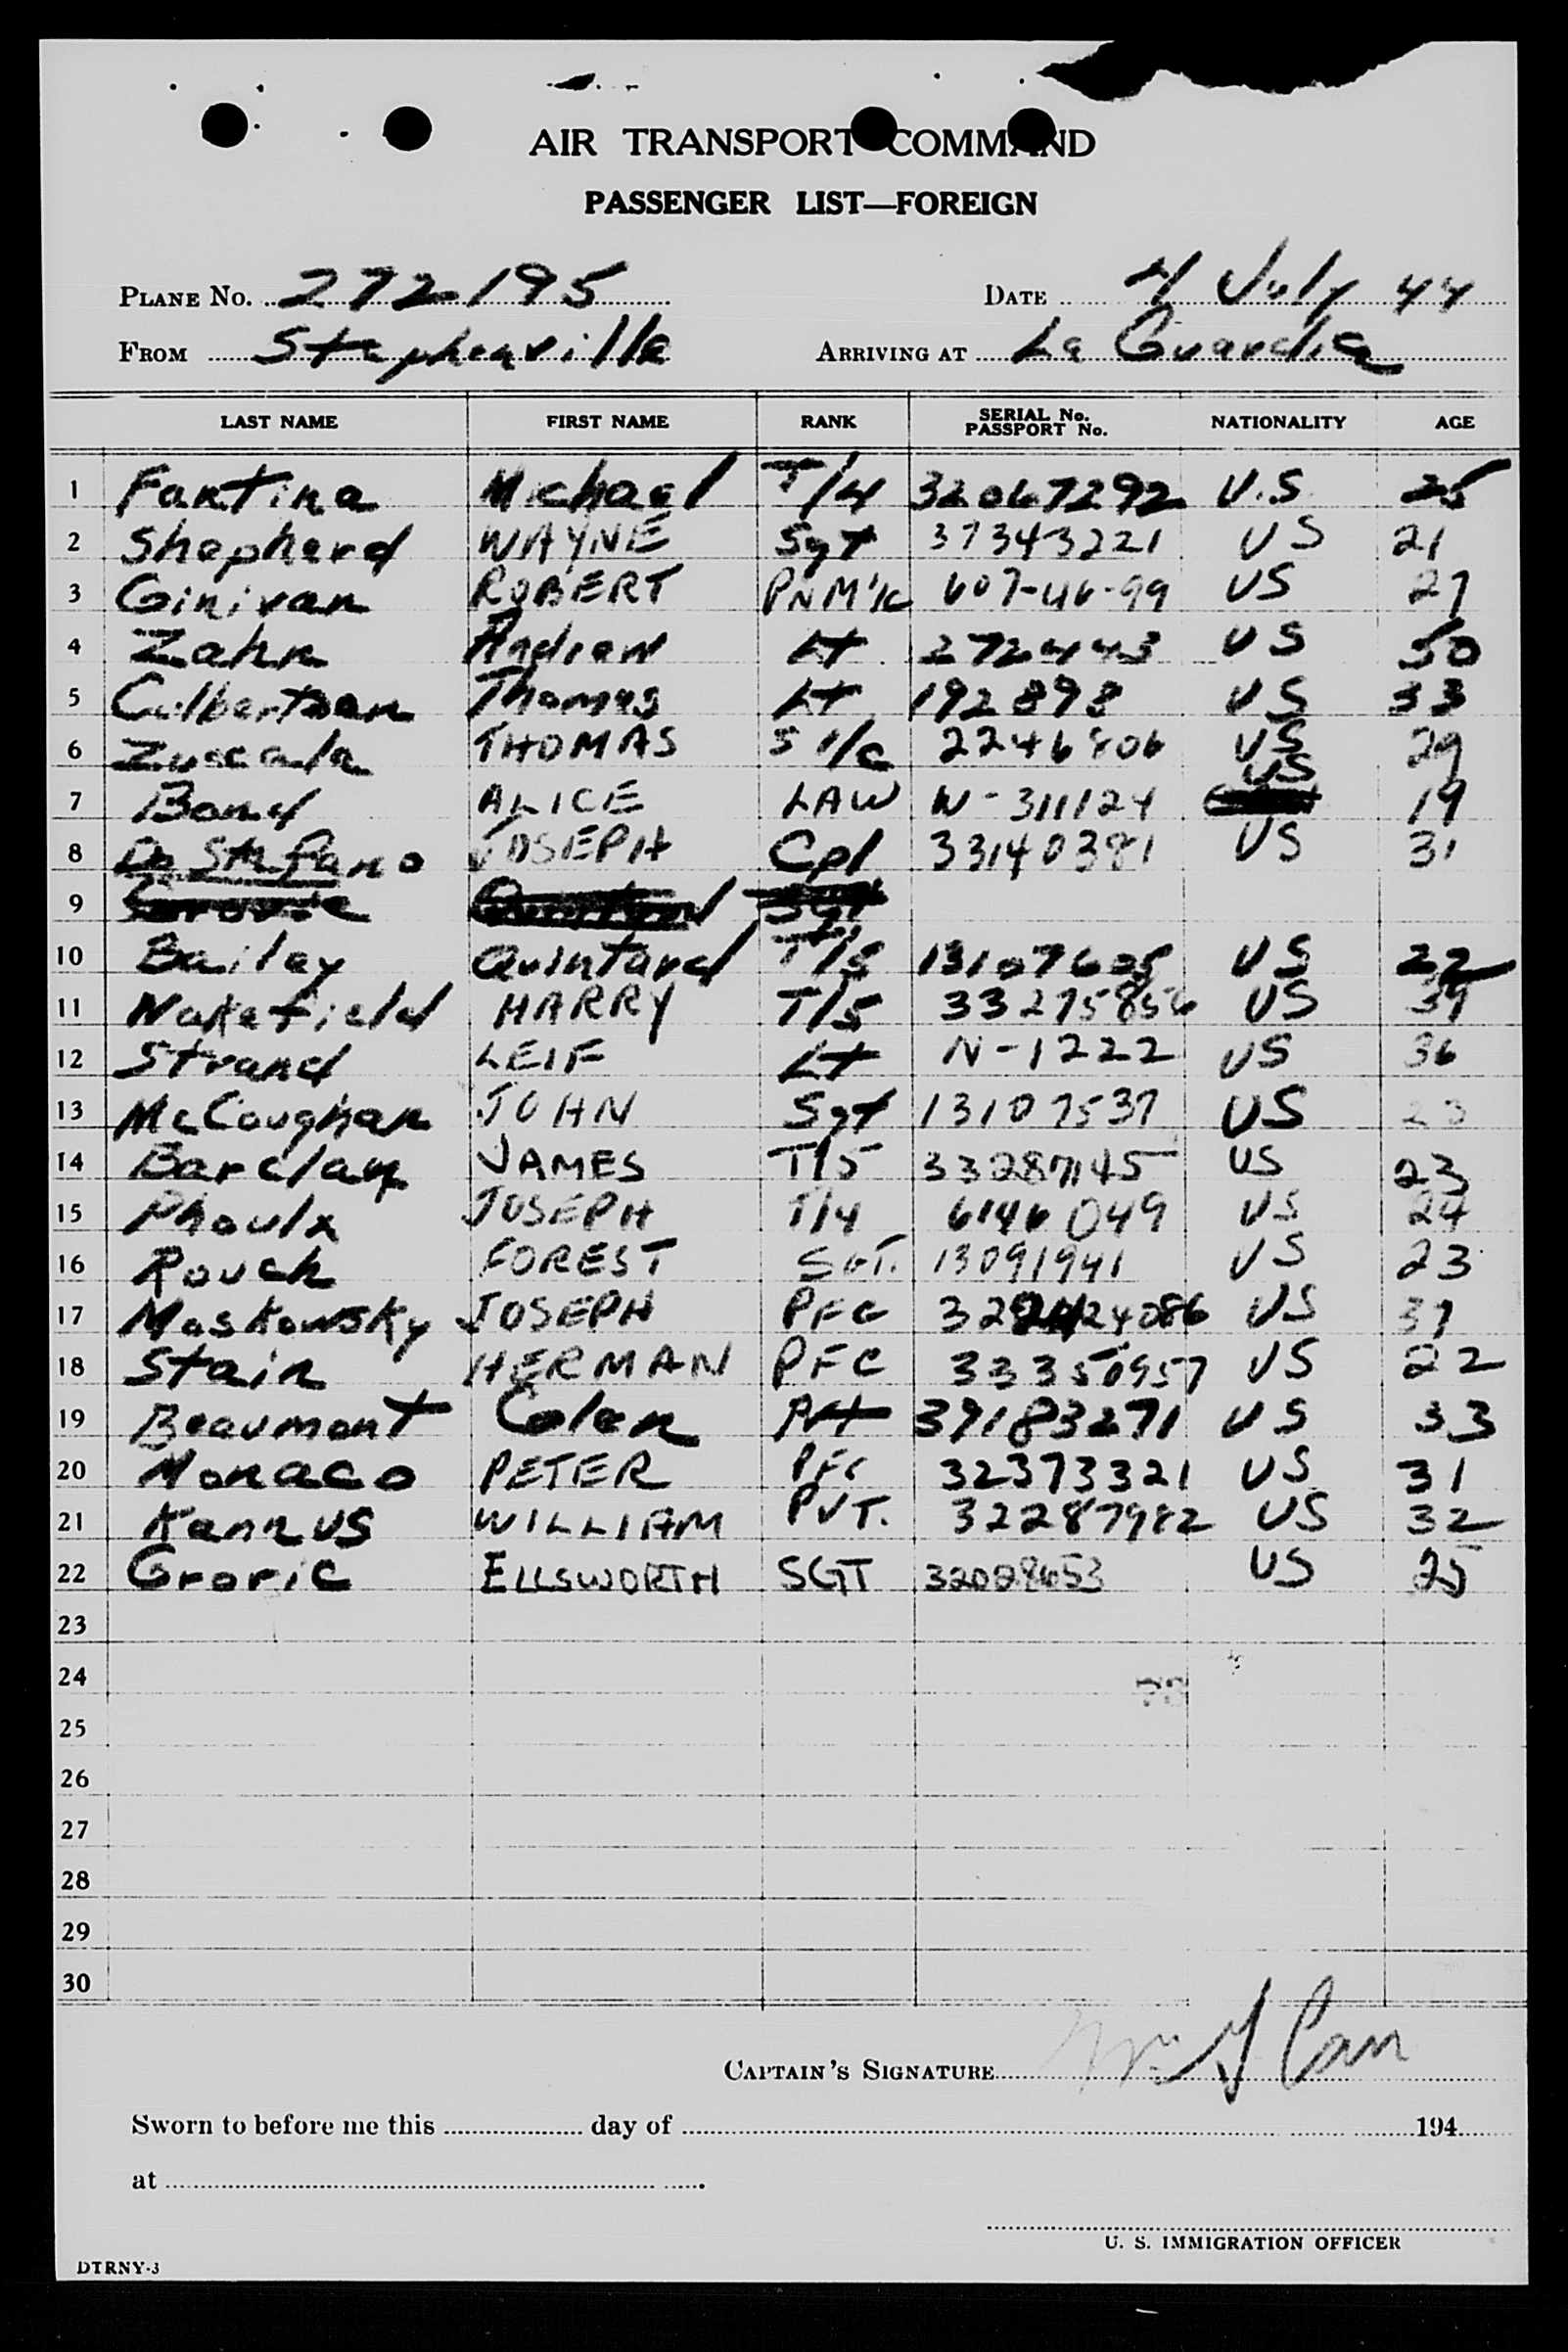 AIR TRANSPORT COMMAND
PASSENGER LIST—FOREIGN
PLANE No. 272195 DATE 4 July 44
FROM Stephenville ARRIVING AT La Guardia
LAST NAME FIRST NAME RANK SERIAL No. PASSPORT No. NATIONALITY AGE
1 Fantina Michael T/4 32067292 U.S 25
2 Shepherd WAYNE Sgt 37343221 US 21
3 Ginivan ROBERT PhM1/c 607-46-99 US 27
4 Zahn Andrew Lt 272443 US 50
5 Culbertson Thomas Lt 192898 US 33
6 Zuscala THOMAS S 1/c 2246806 US 29
7 Bond ALICE LAW W-311124 US 19
8 De Stefano JOSEPH Cpl 33140381 US 31
9 Sgt
10 Bailey Quintard T/5 13107605 US 22
11 Wakefield HARRY T/5 33275856 US 39
12 Strand LEIF Lt N-1222 US 36
13 McCoughan JOHN Sgt 13107537 US 23
14 Barclay JAMES T/5 33287145 US 23
15 Phoulx JOSEPH T/4 6146049 US 24
16 Rouch FOREST SGT. 13091941 US 23
17 Moskowsky JOSEPH PFC US 37
18 Stain HERMAN PFC 33350957 US 22
19 Beaumont Colen Pvt 39183271 US 33
20 Monaco PETER PFC 32373321 US 31
21 Kannus WILLIAM PVT. 32287982 US 32
22 Groric ELLSWORTH SGT 32028653 US 25
23
24
25
26
27
28
29
30
CAPTAIN'S SIGNATURE Wm J Carr
Sworn to before me this day of 194
at
U. S. IMMIGRATION OFFICER
DTRNY-3